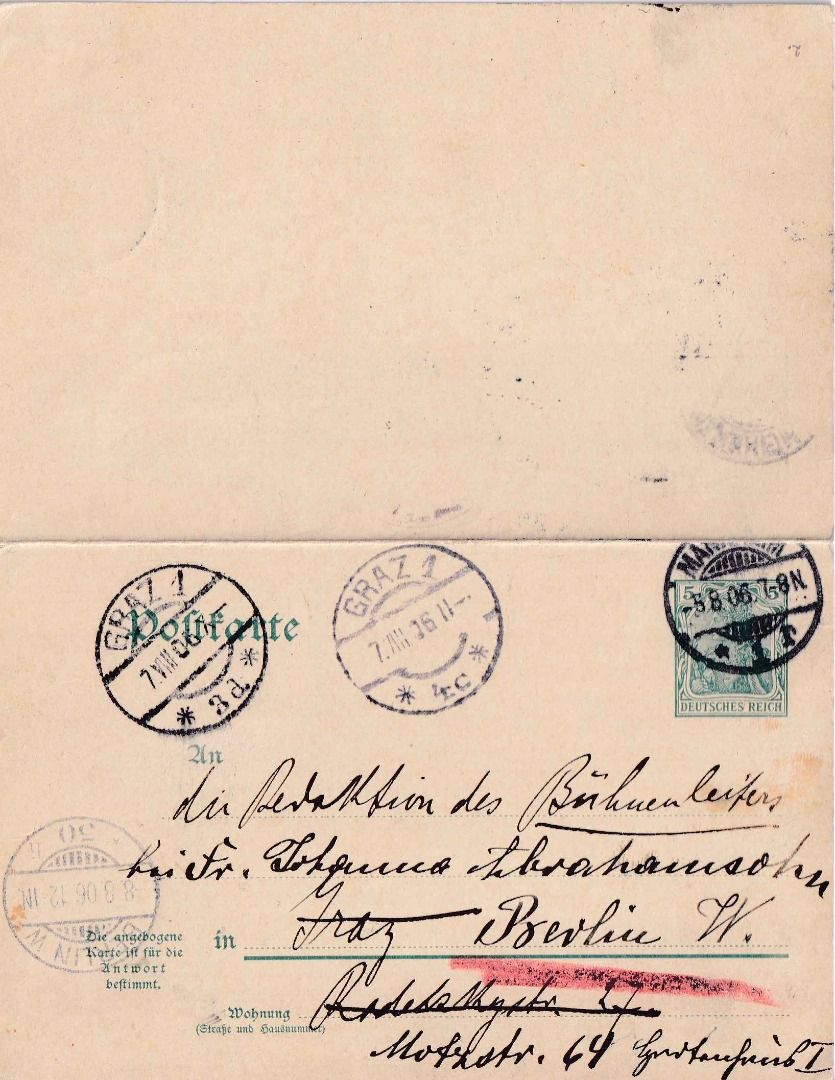 GRAZ 1
7.VIII 06
* 3d *
GRAZ 1
7.VIII 06 11-
* 4c *
MANNHEIM
-5.8.06.7-8N
* 1 r
5 5
DEUTSCHES REICH
Postkarte
An
die Redaktion des Bühnenleiters
bei Fr. Johanna Abrahamsohn
in Graz Berlin W.
Die angebogene
Karte ist für die
Antwort
bestimmt.
Wohnung Radetzkystr. 27
(Straße und Hausnummer)
Motzstr. 64 Gartenhaus I
BERLIN W
8.8.06.12-1N.
* 30 h